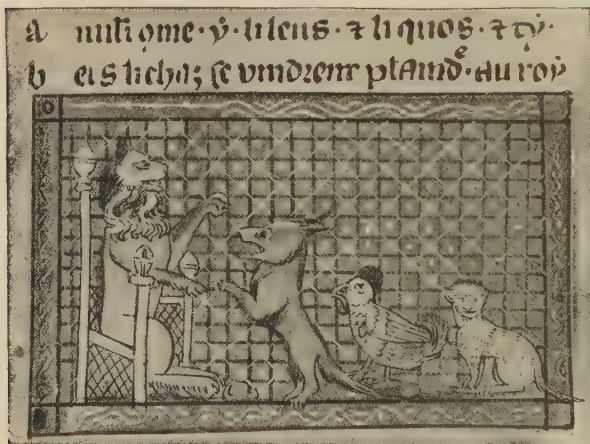 a ome · ẏ · li leus · ⁊ li quos · ⁊ tẏ ·
b ers li chaz se vindrent plaindᵉ · au roẏ